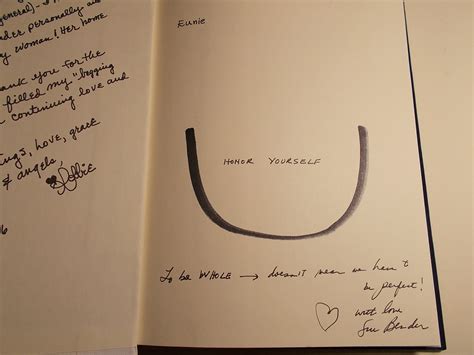 general) -
nder personally and
y woman! Her home
ank you for the
filled my "begging
continuing love and
ngs, love, grace
& angels,
Debbie
Eunie
HONOR YOURSELF
To be WHOLE → doesn't mean we have to
be perfect!
with love
Sue Bender